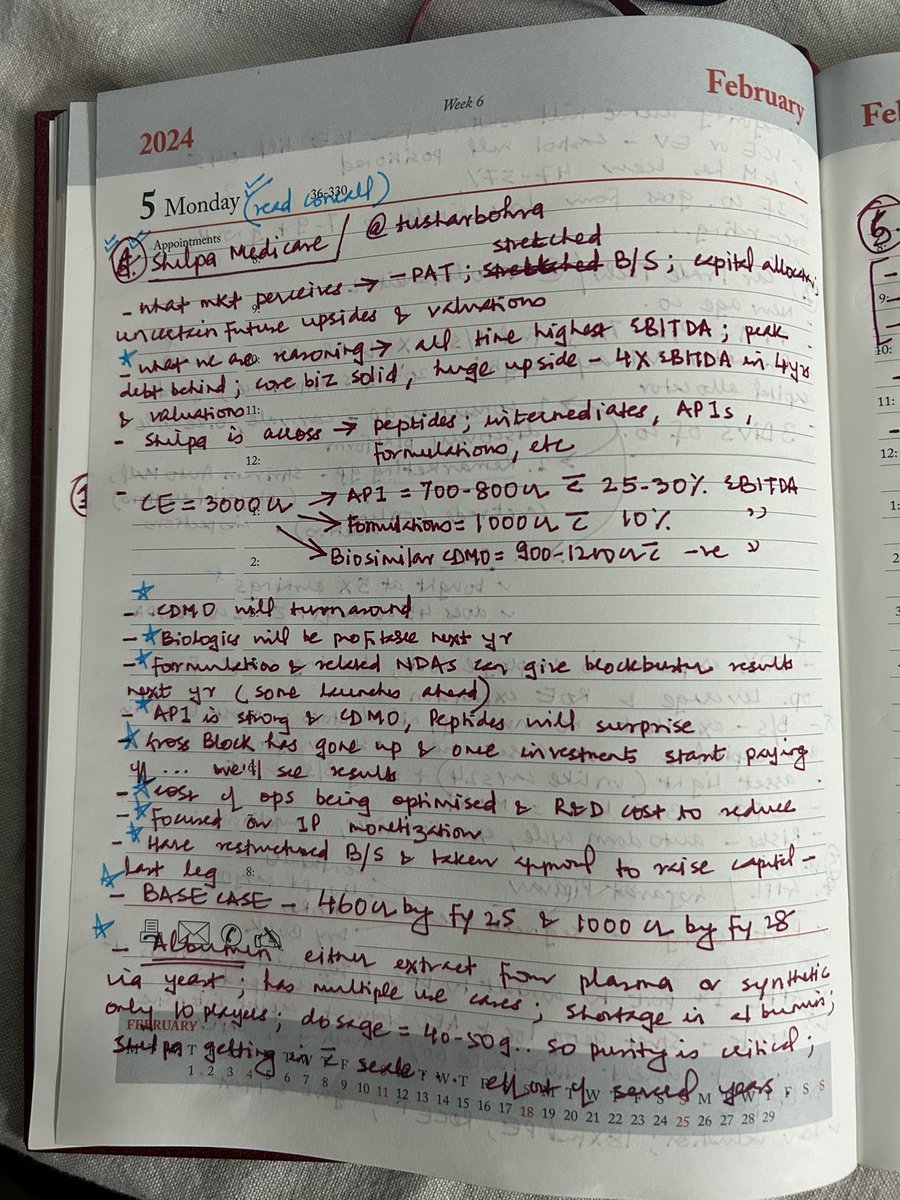 Week 6
February
2024
5 Monday
36-330
(read concall)
Appointments
4. Shilpa Medicare / @tusharbohra
- what mkt perceives → - PAT ; stretched B/S ; capital allocation ;
uncertain future upsides & valuations
- what we are reasoning → all time highest EBITDA ; peak
debt behind ; core biz solid, huge upside - 4X EBITDA in 4yr
& valuation
11:
- Shilpa is across → peptides ; intermediates, APIs,
formulations, etc
12:
- CE = 3000 cr → API = 700-800 cr c̄ 25-30% EBITDA
→ Formulations = 1000 cr c̄ 10% "
2:
→ Biosimilar CDMO = 900-1200 cr c̄ -ve "
- CDMO will turnaround
- Biologics will be profitable next yr
- Formulation & related NDAs can give blockbuster results
next yr (some launches ahead)
- API is strong & CDMO, Peptides will surprise
- Gross Block has gone up & once investments start paying
off ... we'll see results
- cost of ops being optimised & R&D cost to reduce
- Focused on IP monetization
- Have restructured B/S & taken approval to raise capital -
last leg
8:
- BASE CASE - 460 cr by FY 25 & 1000 cr by FY 28
- Albumin either extract from plasma or synthetic
via yeast ; has multiple use cases ; shortage in albumin ;
only 10 players ; dosage = 40-50g.. so purity is critical ;
FEBRUARY
Shilpa getting in c̄ scale effort of several years.
M T W T F S S M T W T F S S M T W T F S S M T W T F S S
1 2 3 4 5 6 7 8 9 10 11 12 13 14 15 16 17 18 19 20 21 22 23 24 25 26 27 28 29
Fe
5.
9:
10:
11:
12:
1:
2: